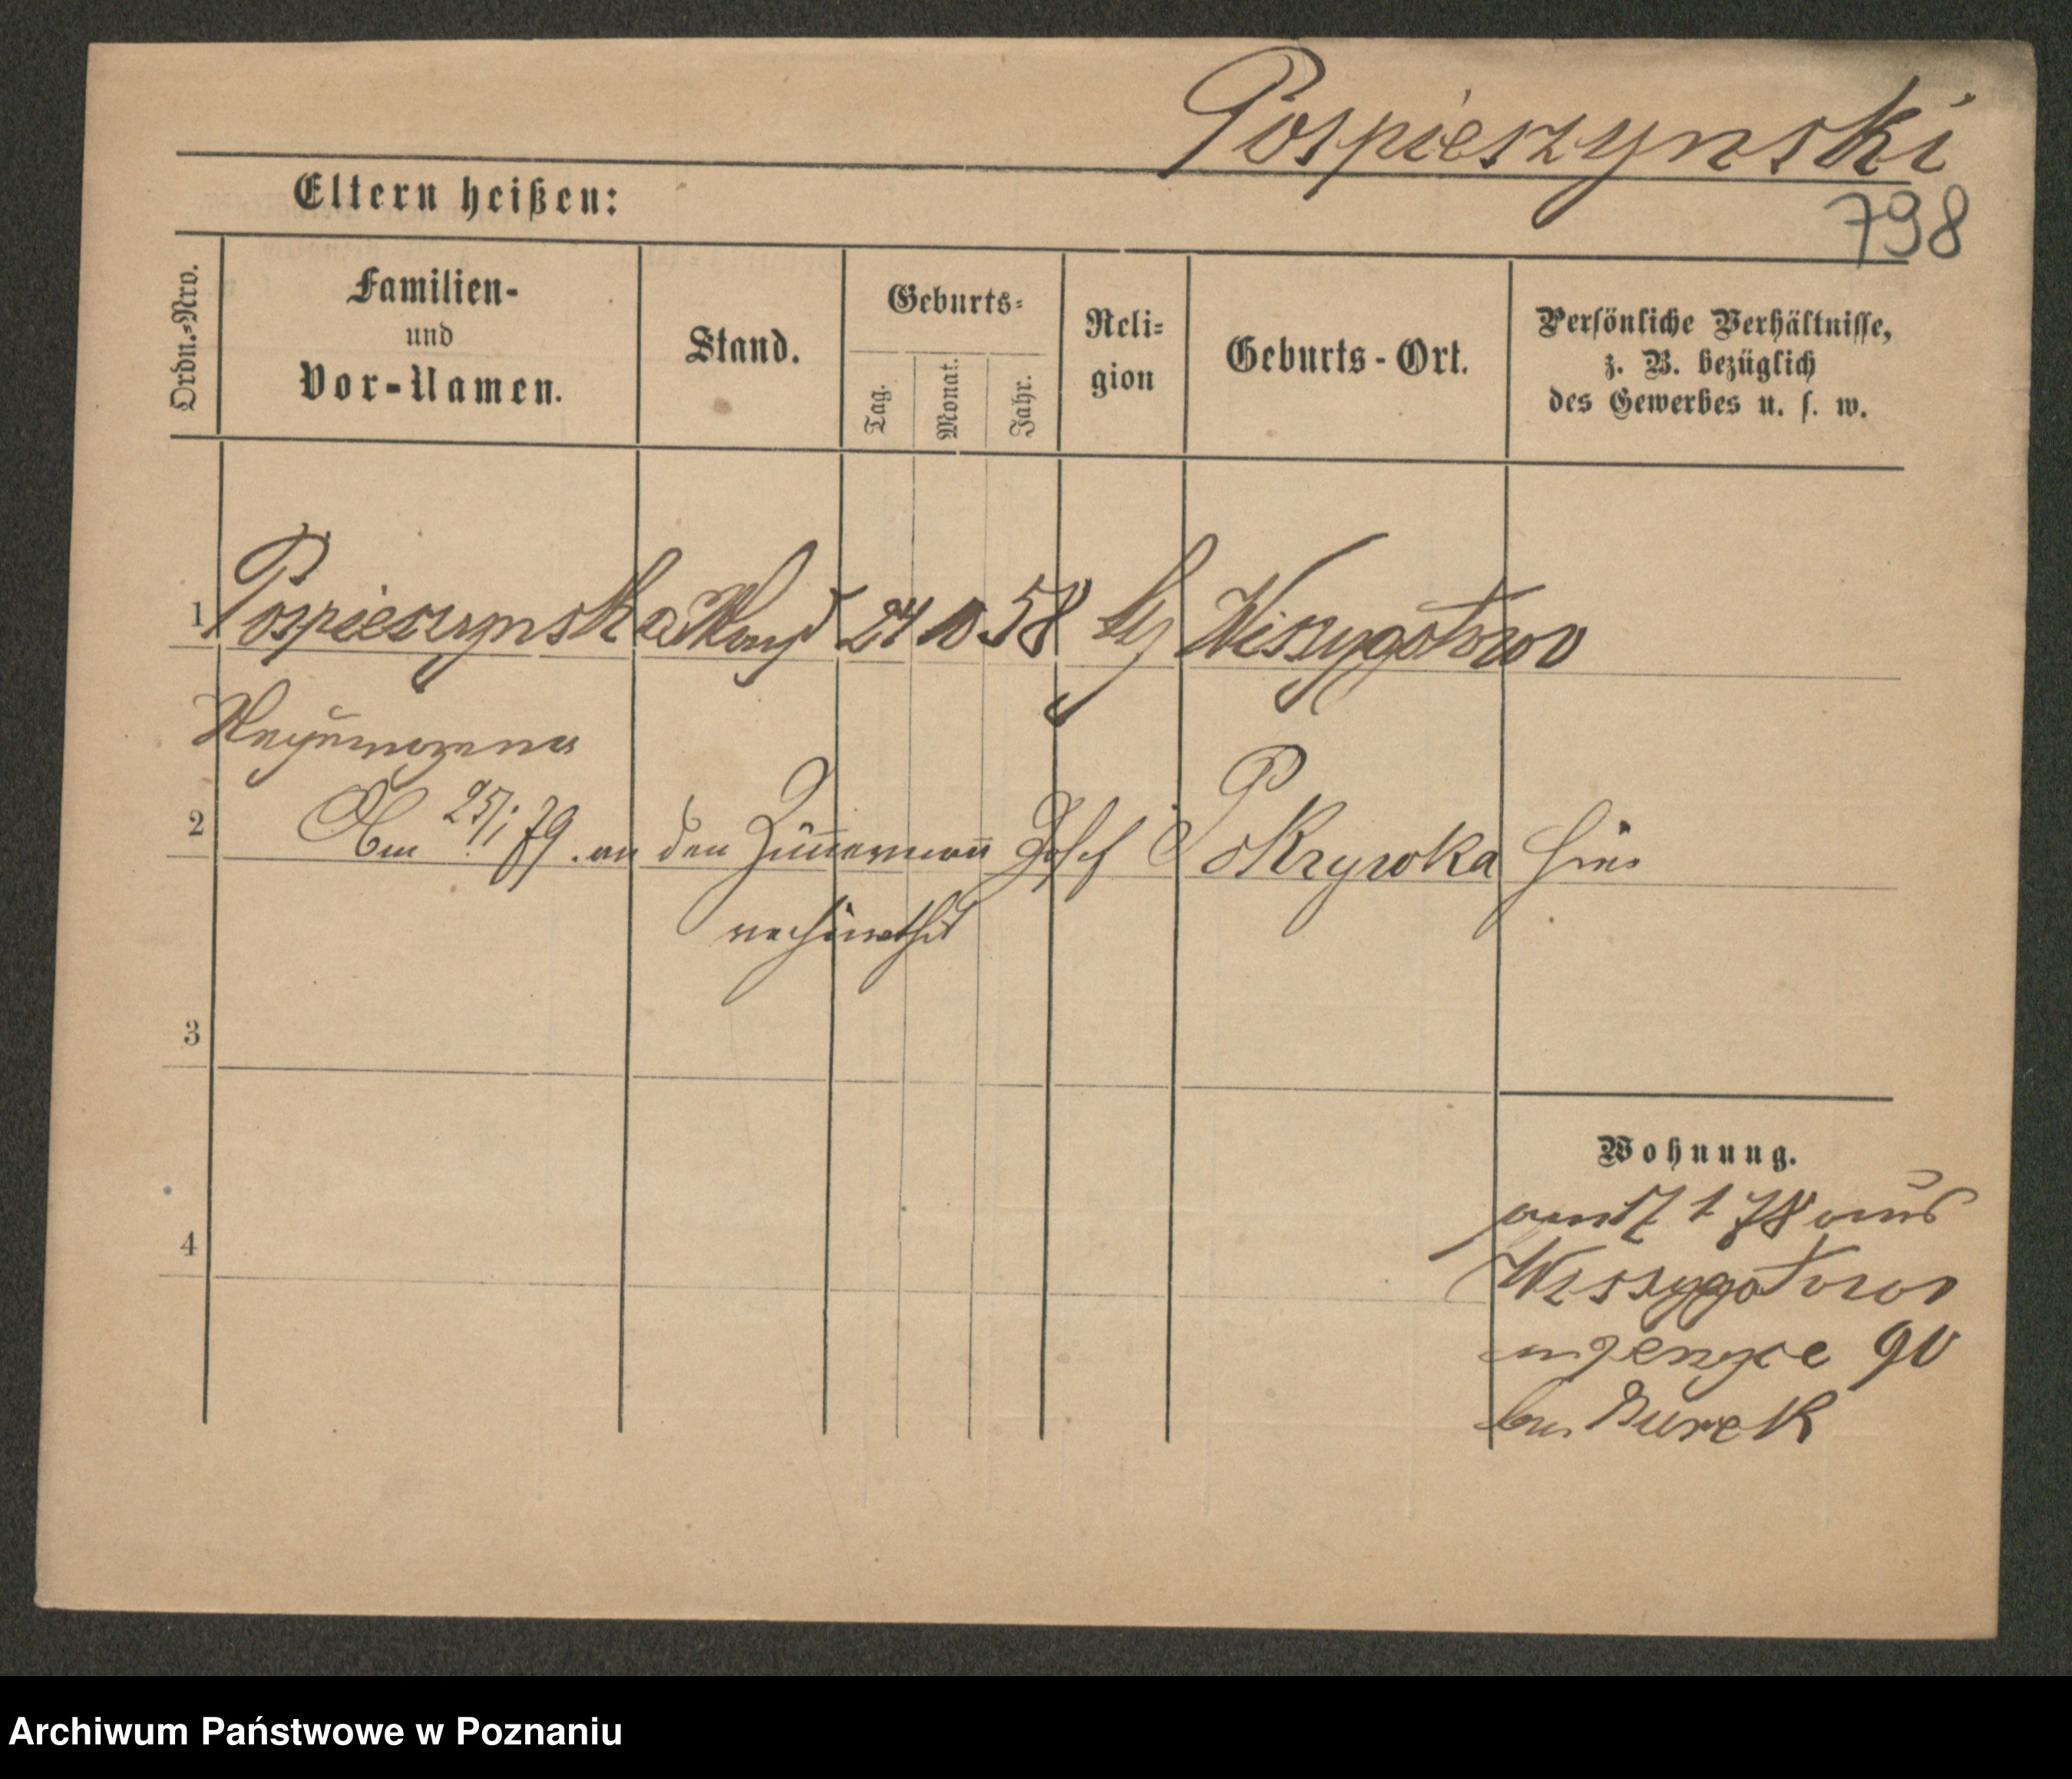 Pospieszynski
798
Eltern heißen:
Ordn.=Nro.
Familien-
und
Vor-Namen.
Stand.
Geburts=
Tag.
Monat.
Jahr.
Reli=
gion
Geburts-Ort.
Persönliche Verhältnisse,
z. B. bezüglich
des Gewerbes u. s. w.
1 Pospieszynska Magd 24 10 58 Wissygotowo
2 Am 25/1 79. an den Zim̄erman̄ Josef Pokrywka hier
verheirathet
3
4
Wohnung.
am 17 1 78 aus
Wissygotowo
90
bei Burek
Archiwum Państwowe w Poznaniu